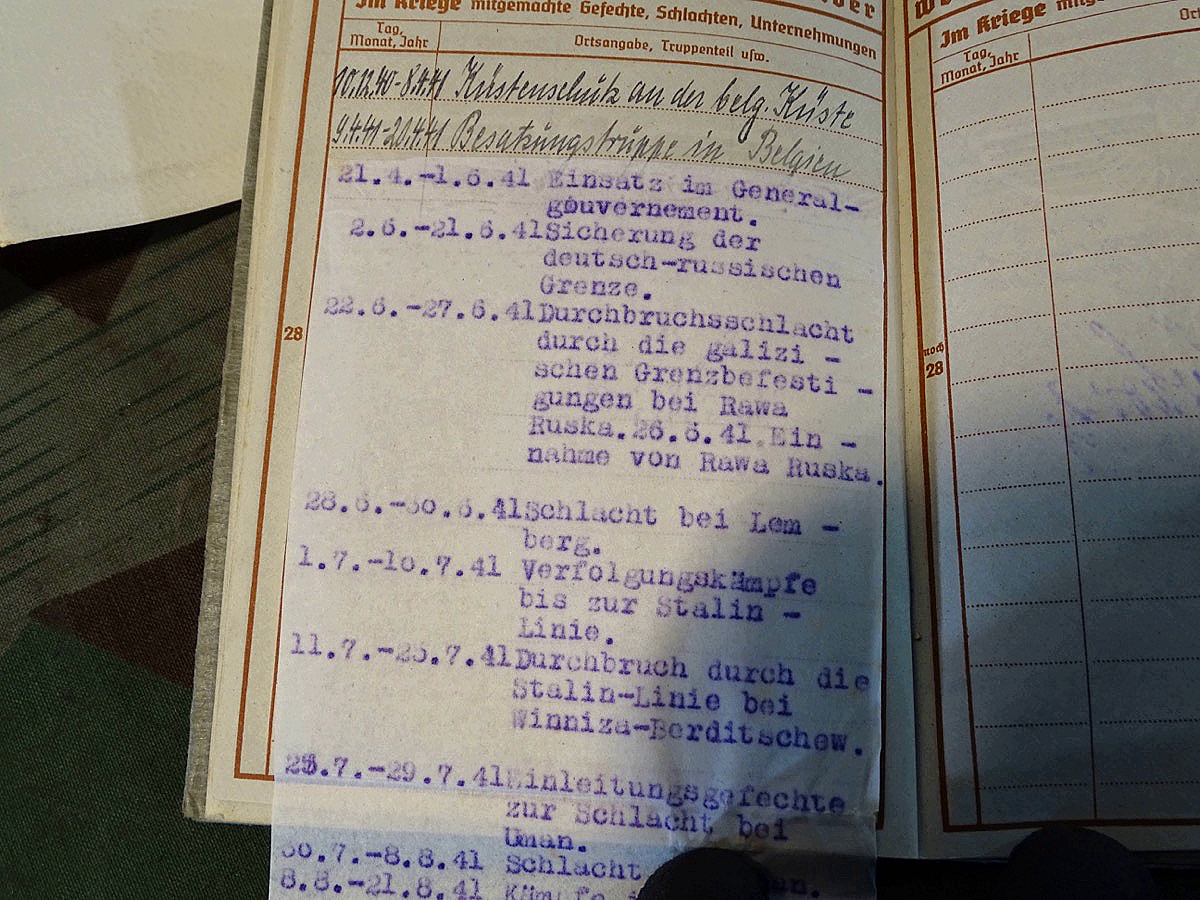 Im Kriege mitgemachte Gefechte, Schlachten, Unternehmungen
Tag, Monat, Jahr
Ortsangabe, Truppenteil usw.
10.12.40-8.4.41 Küstenschutz an der belg. Küste
9.4.41-20.4.41 Besatzungstruppe in Belgien
21.4.-1.6.41 Einsatz im General-
gouvernement.
2.6.-21.6.41 Sicherung der
deutsch-russischen
Grenze.
22.6.-27.6.41 Durchbruchsschlacht
durch die galizi -
schen Grenzbefesti -
gungen bei Rawa
Ruska. 26.6.41. Ein -
nahme von Rawa Ruska.
28.6.-30.6.41 Schlacht bei Lem -
berg.
1.7.-10.7.41 Verfolgungskämpfe
bis zur Stalin -
Linie.
11.7.-25.7.41 Durchbruch durch die
Stalin-Linie bei
Winniza-Berditschew.
.7.-29.7.41 Einleitungsgefechte
zur Schlacht bei
Uman.
30.7.-8.8.41 Schlacht
8.8.-21.8.41 Kämpfe
28
Im Kriege
Tag,
Monat, Jahr
noch
28